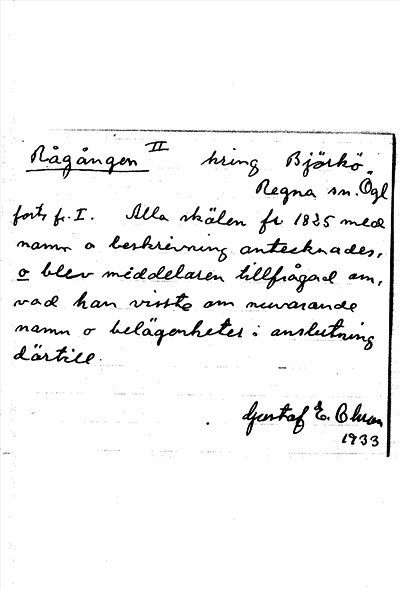 Rågången II kring Björkö,
Regna sn. Ögl
forts fr. I. Alla skälen fr 1825 med
namn o beskrivning antecknades,
o blev meddelaren tillfrågad om,
vad han visste om nuvarande
namn o belägenheter i anslutning
därtill.
Gustaf E. Olsson
1933